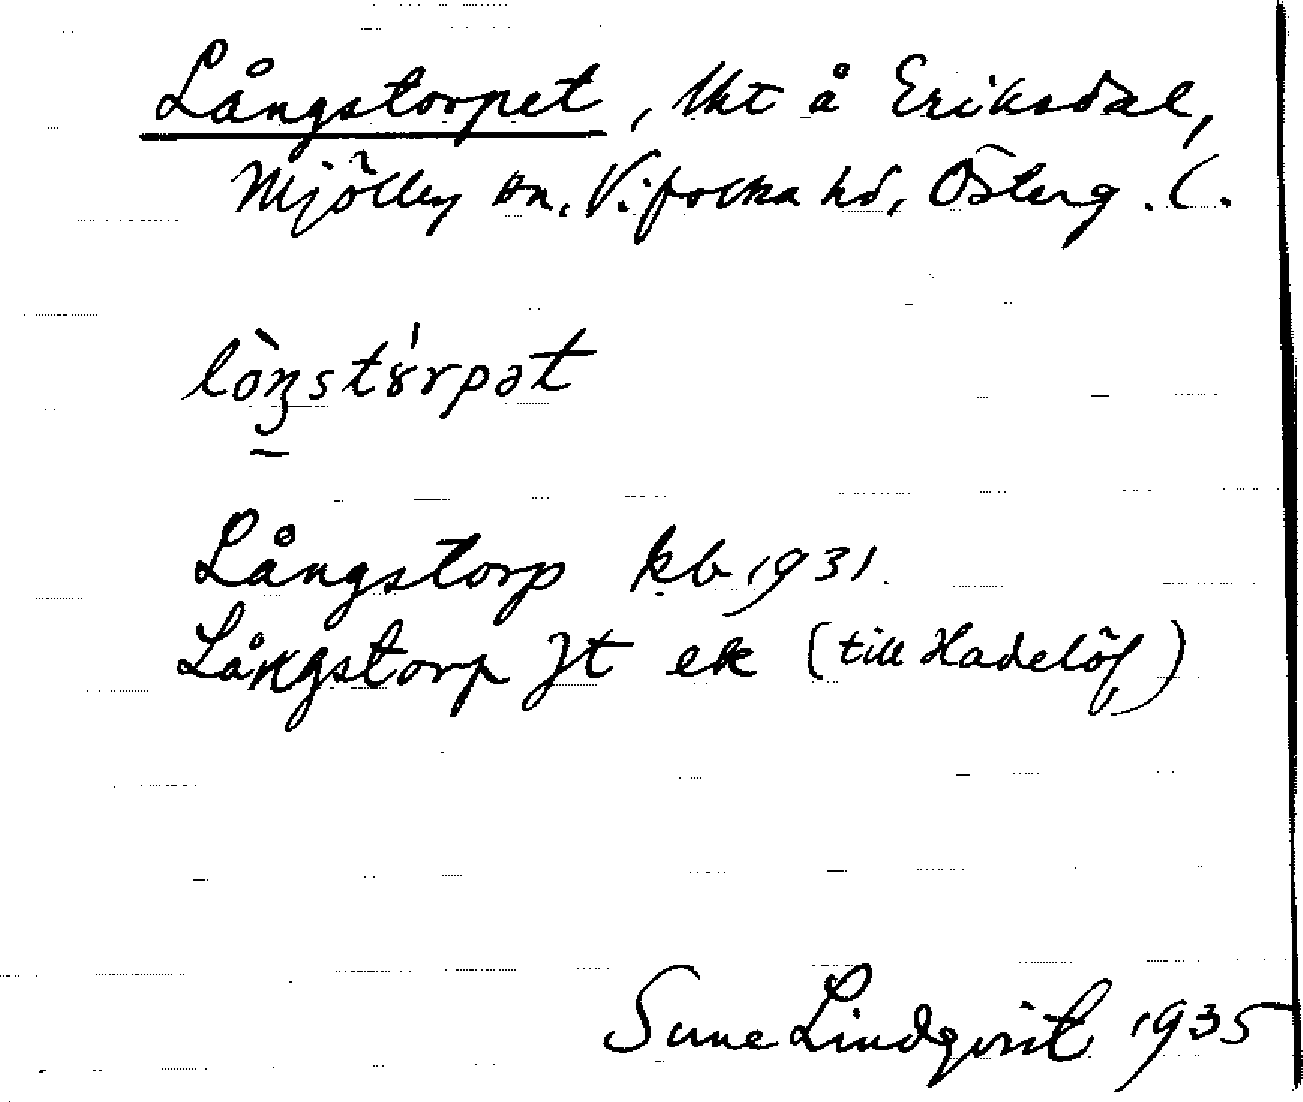 Långstorpet, lht å Eriksdal,
Mjölby sn. Vifolka hd, Österg. l.
lòŋstȣ́rpət
Långstorp kb 1931.
Långstorp Jt ek (till Hadelöf)
Sune Lindqvist 1935